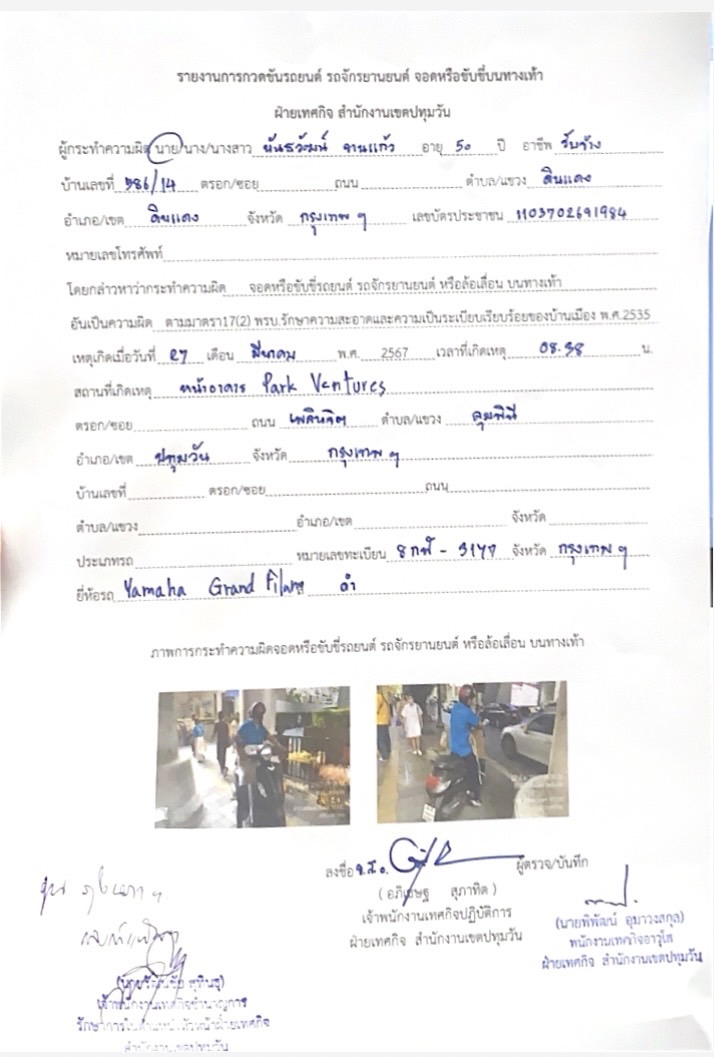 รายงานการกวดขันรถยนต์ รถจักรยานยนต์ จอดหรือขับขี่บนทางเท้า
ฝ่ายเทศกิจ สำนักงานเขตปทุมวัน
ผู้กระทำความผิด นาย/นาง/นางสาว พันธวัฒน์ จานแก้ว อายุ 50 ปี อาชีพ รับจ้าง
บ้านเลขที่ 986/14 ตรอก/ซอย ถนน ตำบล/แขวง ดินแดง
อำเภอ/เขต ดินแดง จังหวัด กรุงเทพฯ เลขบัตรประชาชน 1103702691984
หมายเลขโทรศัพท์
โดยกล่าวหาว่ากระทำความผิด จอดหรือขับขี่รถยนต์ รถจักรยานยนต์ หรือล้อเลื่อน บนทางเท้า
อันเป็นความผิด ตามมาตรา17(2) พรบ.รักษาความสะอาดและความเป็นระเบียบเรียบร้อยของบ้านเมือง พ.ศ.2535
เหตุเกิดเมื่อวันที่ 27 เดือน มีนาคม พ.ศ. 2567 เวลาที่เกิดเหตุ 08.38 น.
สถานที่เกิดเหตุ หน้าอาคาร Park Ventures
ตรอก/ซอย ถนน เพลินจิต ตำบล/แขวง ลุมพินี
อำเภอ/เขต ปทุมวัน จังหวัด กรุงเทพฯ
บ้านเลขที่ ตรอก/ซอย ถนน
ตำบล/แขวง อำเภอ/เขต จังหวัด
ประเภทรถ หมายเลขทะเบียน จังหวัด กรุงเทพฯ
ยี่ห้อรถ Yamaha Grand Filano ดำ
ภาพการกระทำความผิดจอดหรือขับขี่รถยนต์ รถจักรยานยนต์ หรือล้อเลื่อน บนทางเท้า
ลงชื่อ ผู้ตรวจ/บันทึก
(อภิเชษฐ สุภาทิต)
เจ้าพนักงานเทศกิจปฏิบัติการ
ฝ่ายเทศกิจ สำนักงานเขตปทุมวัน
(นายพิพัฒน์ อุมาวงสกุล)
พนักงานเทศกิจอาวุโส
ฝ่ายเทศกิจ สำนักงานเขตปทุมวัน
เจ้าพนักงานเทศกิจชำนาญการ
รักษาการในตำแหน่งหัวหน้าฝ่ายเทศกิจ
สำนักงานเขตปทุมวัน